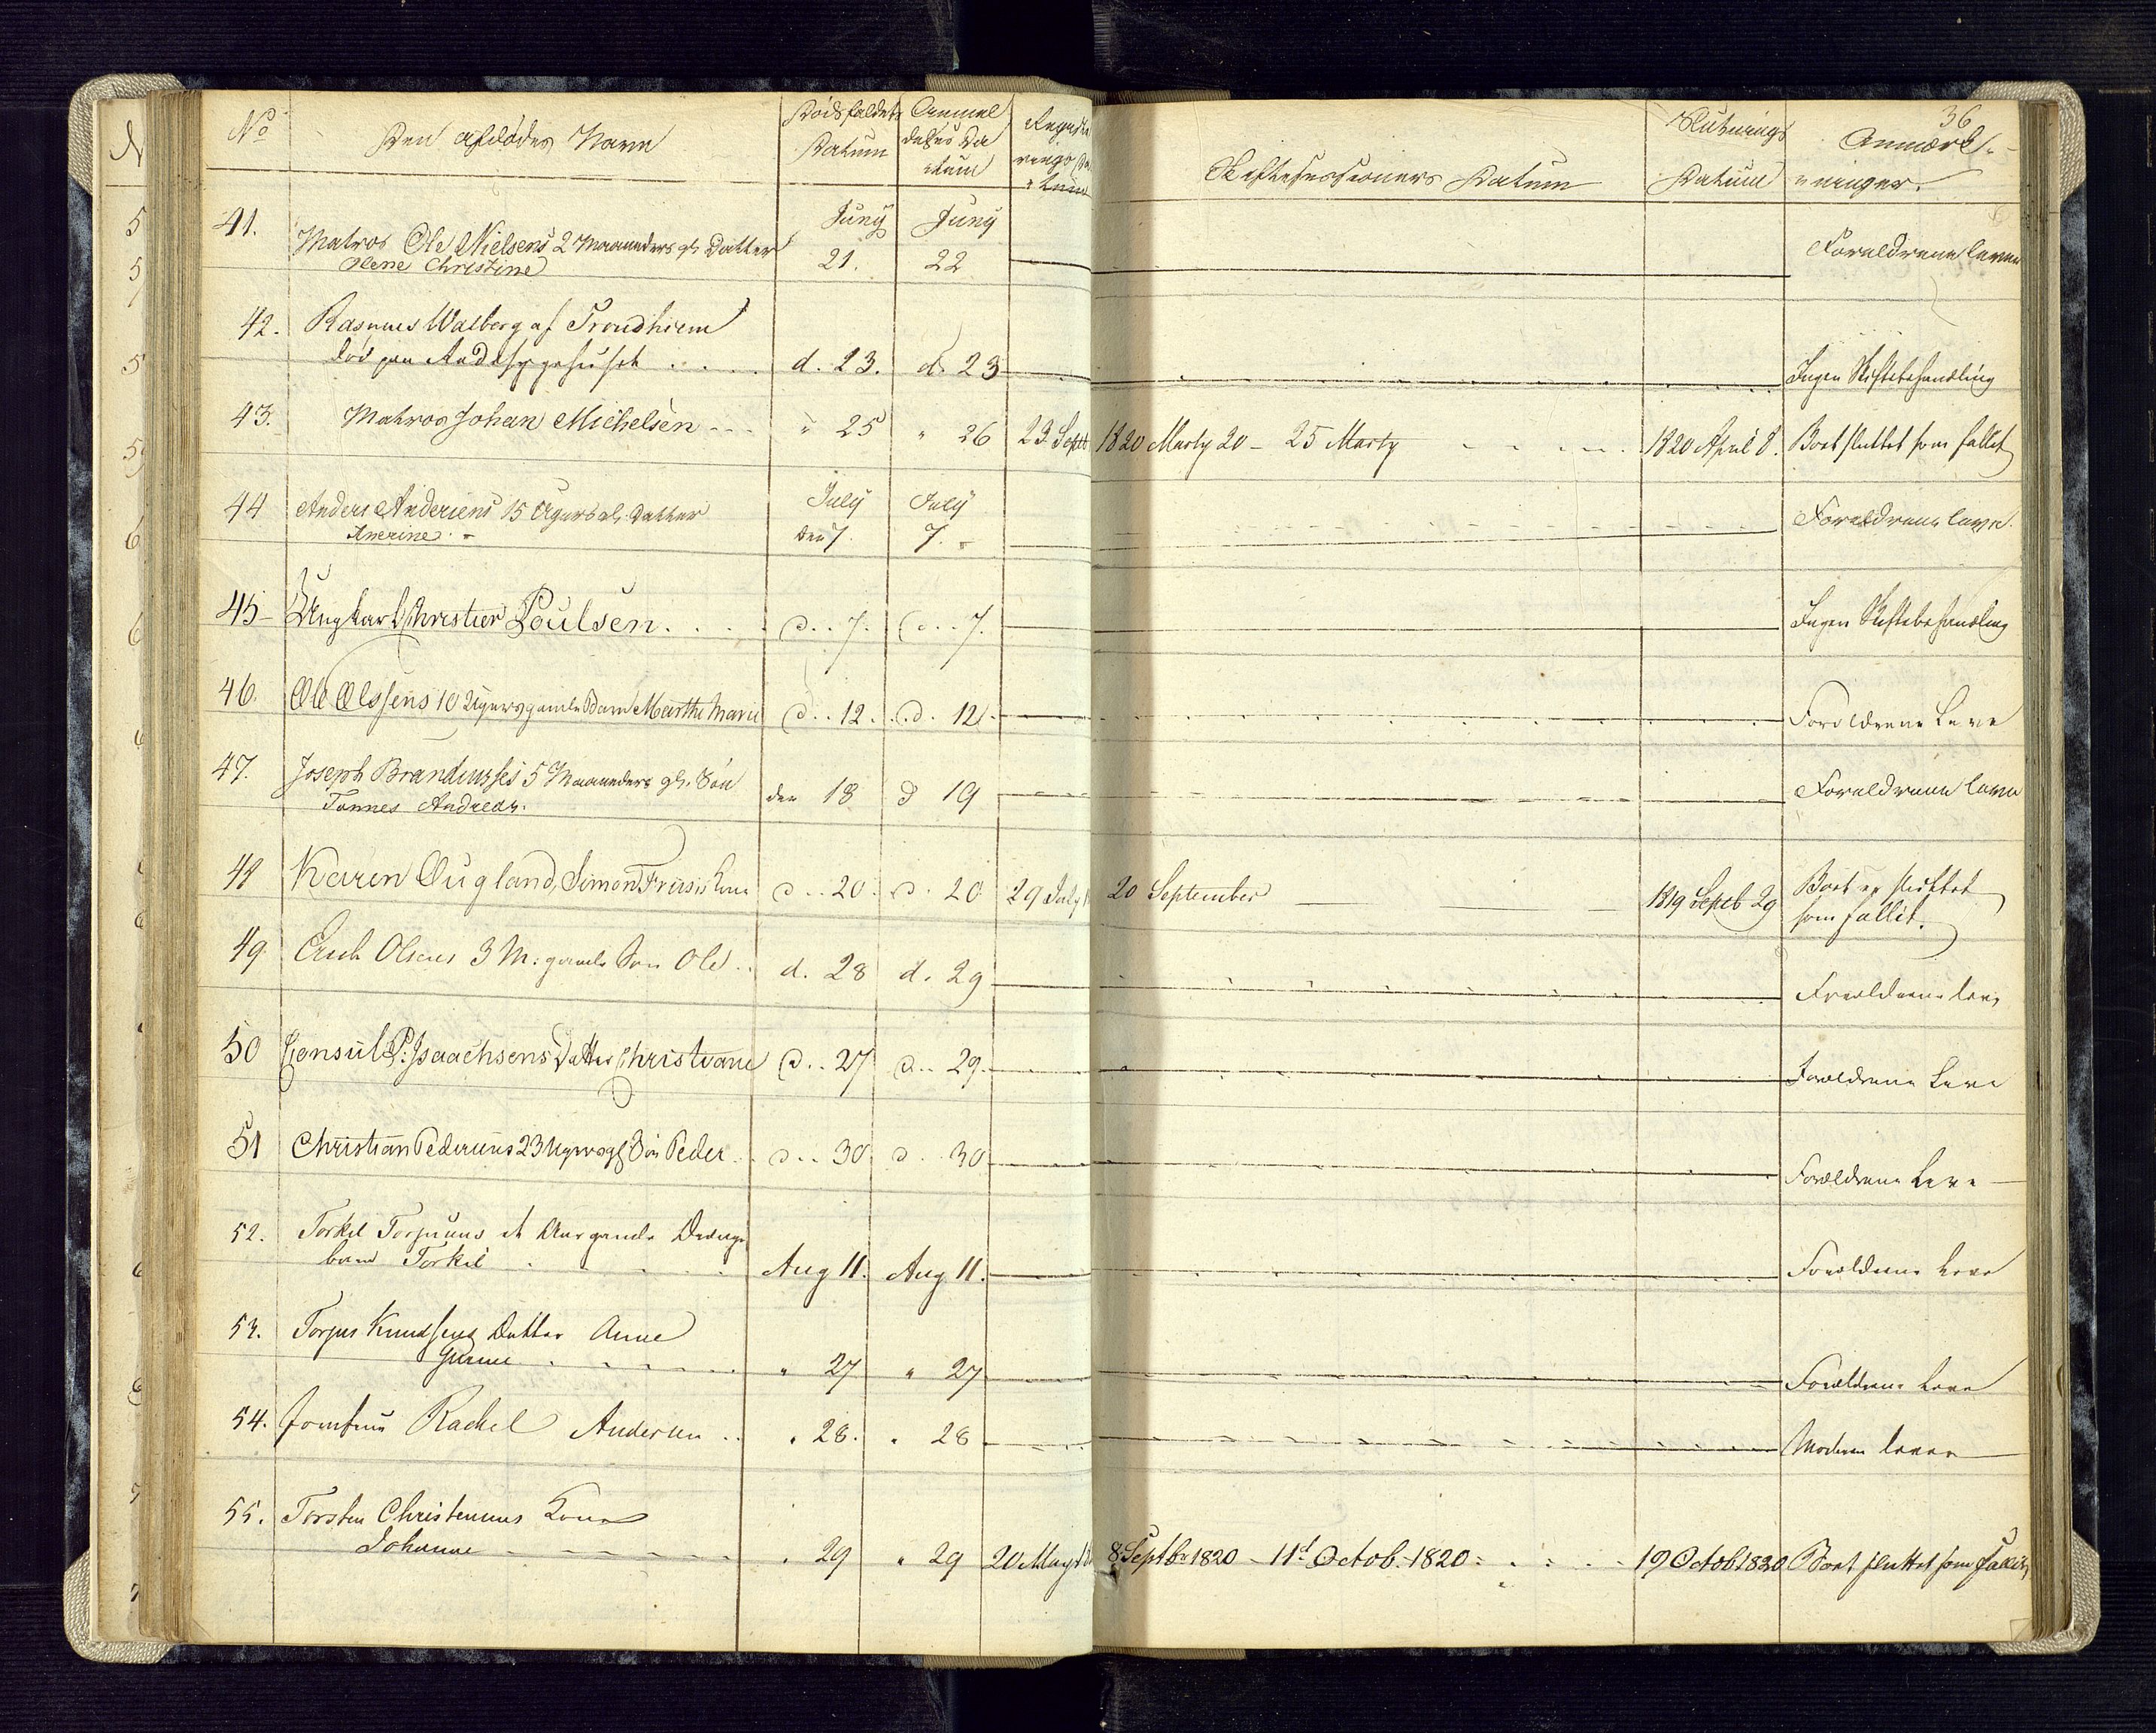 36
No
Den afdødes Navn
Dødsfaldets Datum
Anmeldelses Datum
Registerings Datum
Skiftesessioners Datum
Slutnings Datum
Anmærkninger.
41. Matros Ole Nielsens 2 Maaneders gl. Datter Juny Juny
Olene Christine 21. 22 Forældrene lever
42. Rasmus Walberg af Trondhiem
død paa Stadssygehuset d. 23. d. 23 Ingen Skiftebehandling
43. Matros Johan Michelsen " 25 " 26 23 Sept 1820 Marty 20 - 25 Marty 1820 April 8. Boet sluttet som fallit
44 Anders Andersens 15 Ugers gl. Datter July July
Anerine den 7. 7. Forældrene leve.
45 Ungkarl Christen Poulsen d. 7. d. 7. Ingen Skiftebehandling
46. Ole Olssens 10 Ugers gamle Barn Marthe Marie d. 12. d. 12 Forældrene Leve
47. Joseph 5 Maaneders gl. Søn
Tønnes Andreas. den 18 d 19 Forældrene leve
48 Karen Øugland, Simon Kone d. 20. d. 20 29 July 20 September 1819 Septb 29 Boet er sluttet
som fallit.
49 Erich Olsens 3 M: gamle Søn Ole d. 28 d. 29 Forældrene leve
50 Consul P: Isaachsens Datter Christiane d. 27 d. 29. Forældrene Leve
51 Christian Pedersens 23 Ugers gl Søn Peder d. 30 d. 30 Forældrene Leve
52. Torkel et Aar gamle
barn Torkel Aug 11. Aug 11. Forældrene Leve
53. Torjus Knudsens Datter Anne
" 27 " 27 Forældrene Leve
54. Jomfrue Rachel Andersen " 28. " 28 Moderen lever
55. Torsten Christensens Kone
Johanne " 29 " 29 20 May 8 Septbr 1820 - 11d Octob. 1820 19 Octob 1820 Boet sluttet som fallit